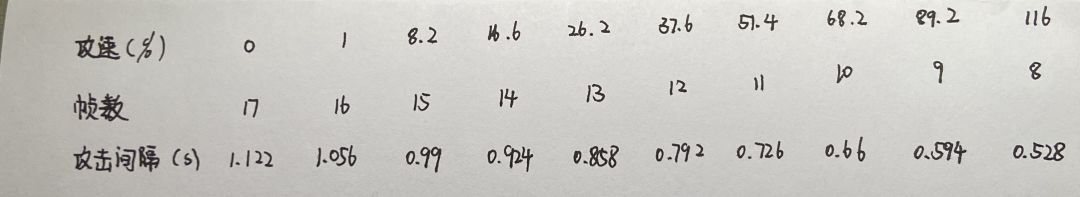 攻速(%) 0 1 8.2 16.6 26.2 37.6 51.4 68.2 89.2 116
帧数 17 16 15 14 13 12 11 10 9 8
攻击间隔(s) 1.122 1.056 0.99 0.924 0.858 0.792 0.726 0.66 0.594 0.528